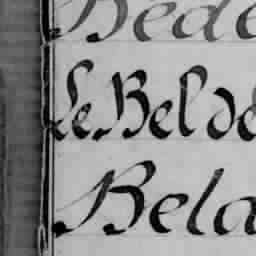 Bede
Le Bel de
Bela